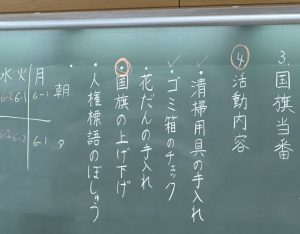 3. 国旗当番
④ 活動内容
・清掃用具の手入れ
・ゴミ箱のチェック
・花だんの手入れ
・国旗の上げ下げ
・人権標語のぼしゅう
・朝
月 火 水
6-1 6-1 6-2
6-1 6-2